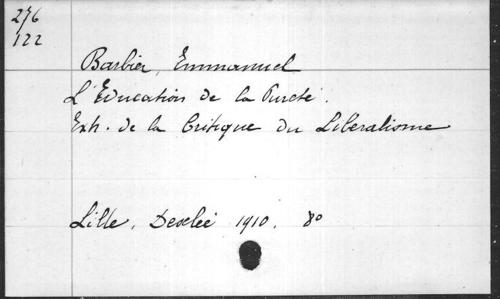 276
122
Barbier, Emmanuel
L'Education de la Pureté.
Extr. de la Critique du Libéralisme
Lille, Desclée 1910. 8°